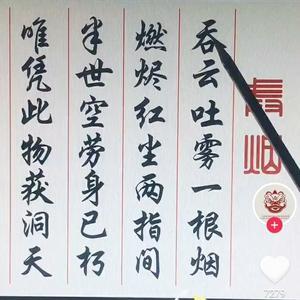 吞云吐雾一根烟
燃烬红尘两指间
半世空劳身已朽
唯凭此物获洞天
7279